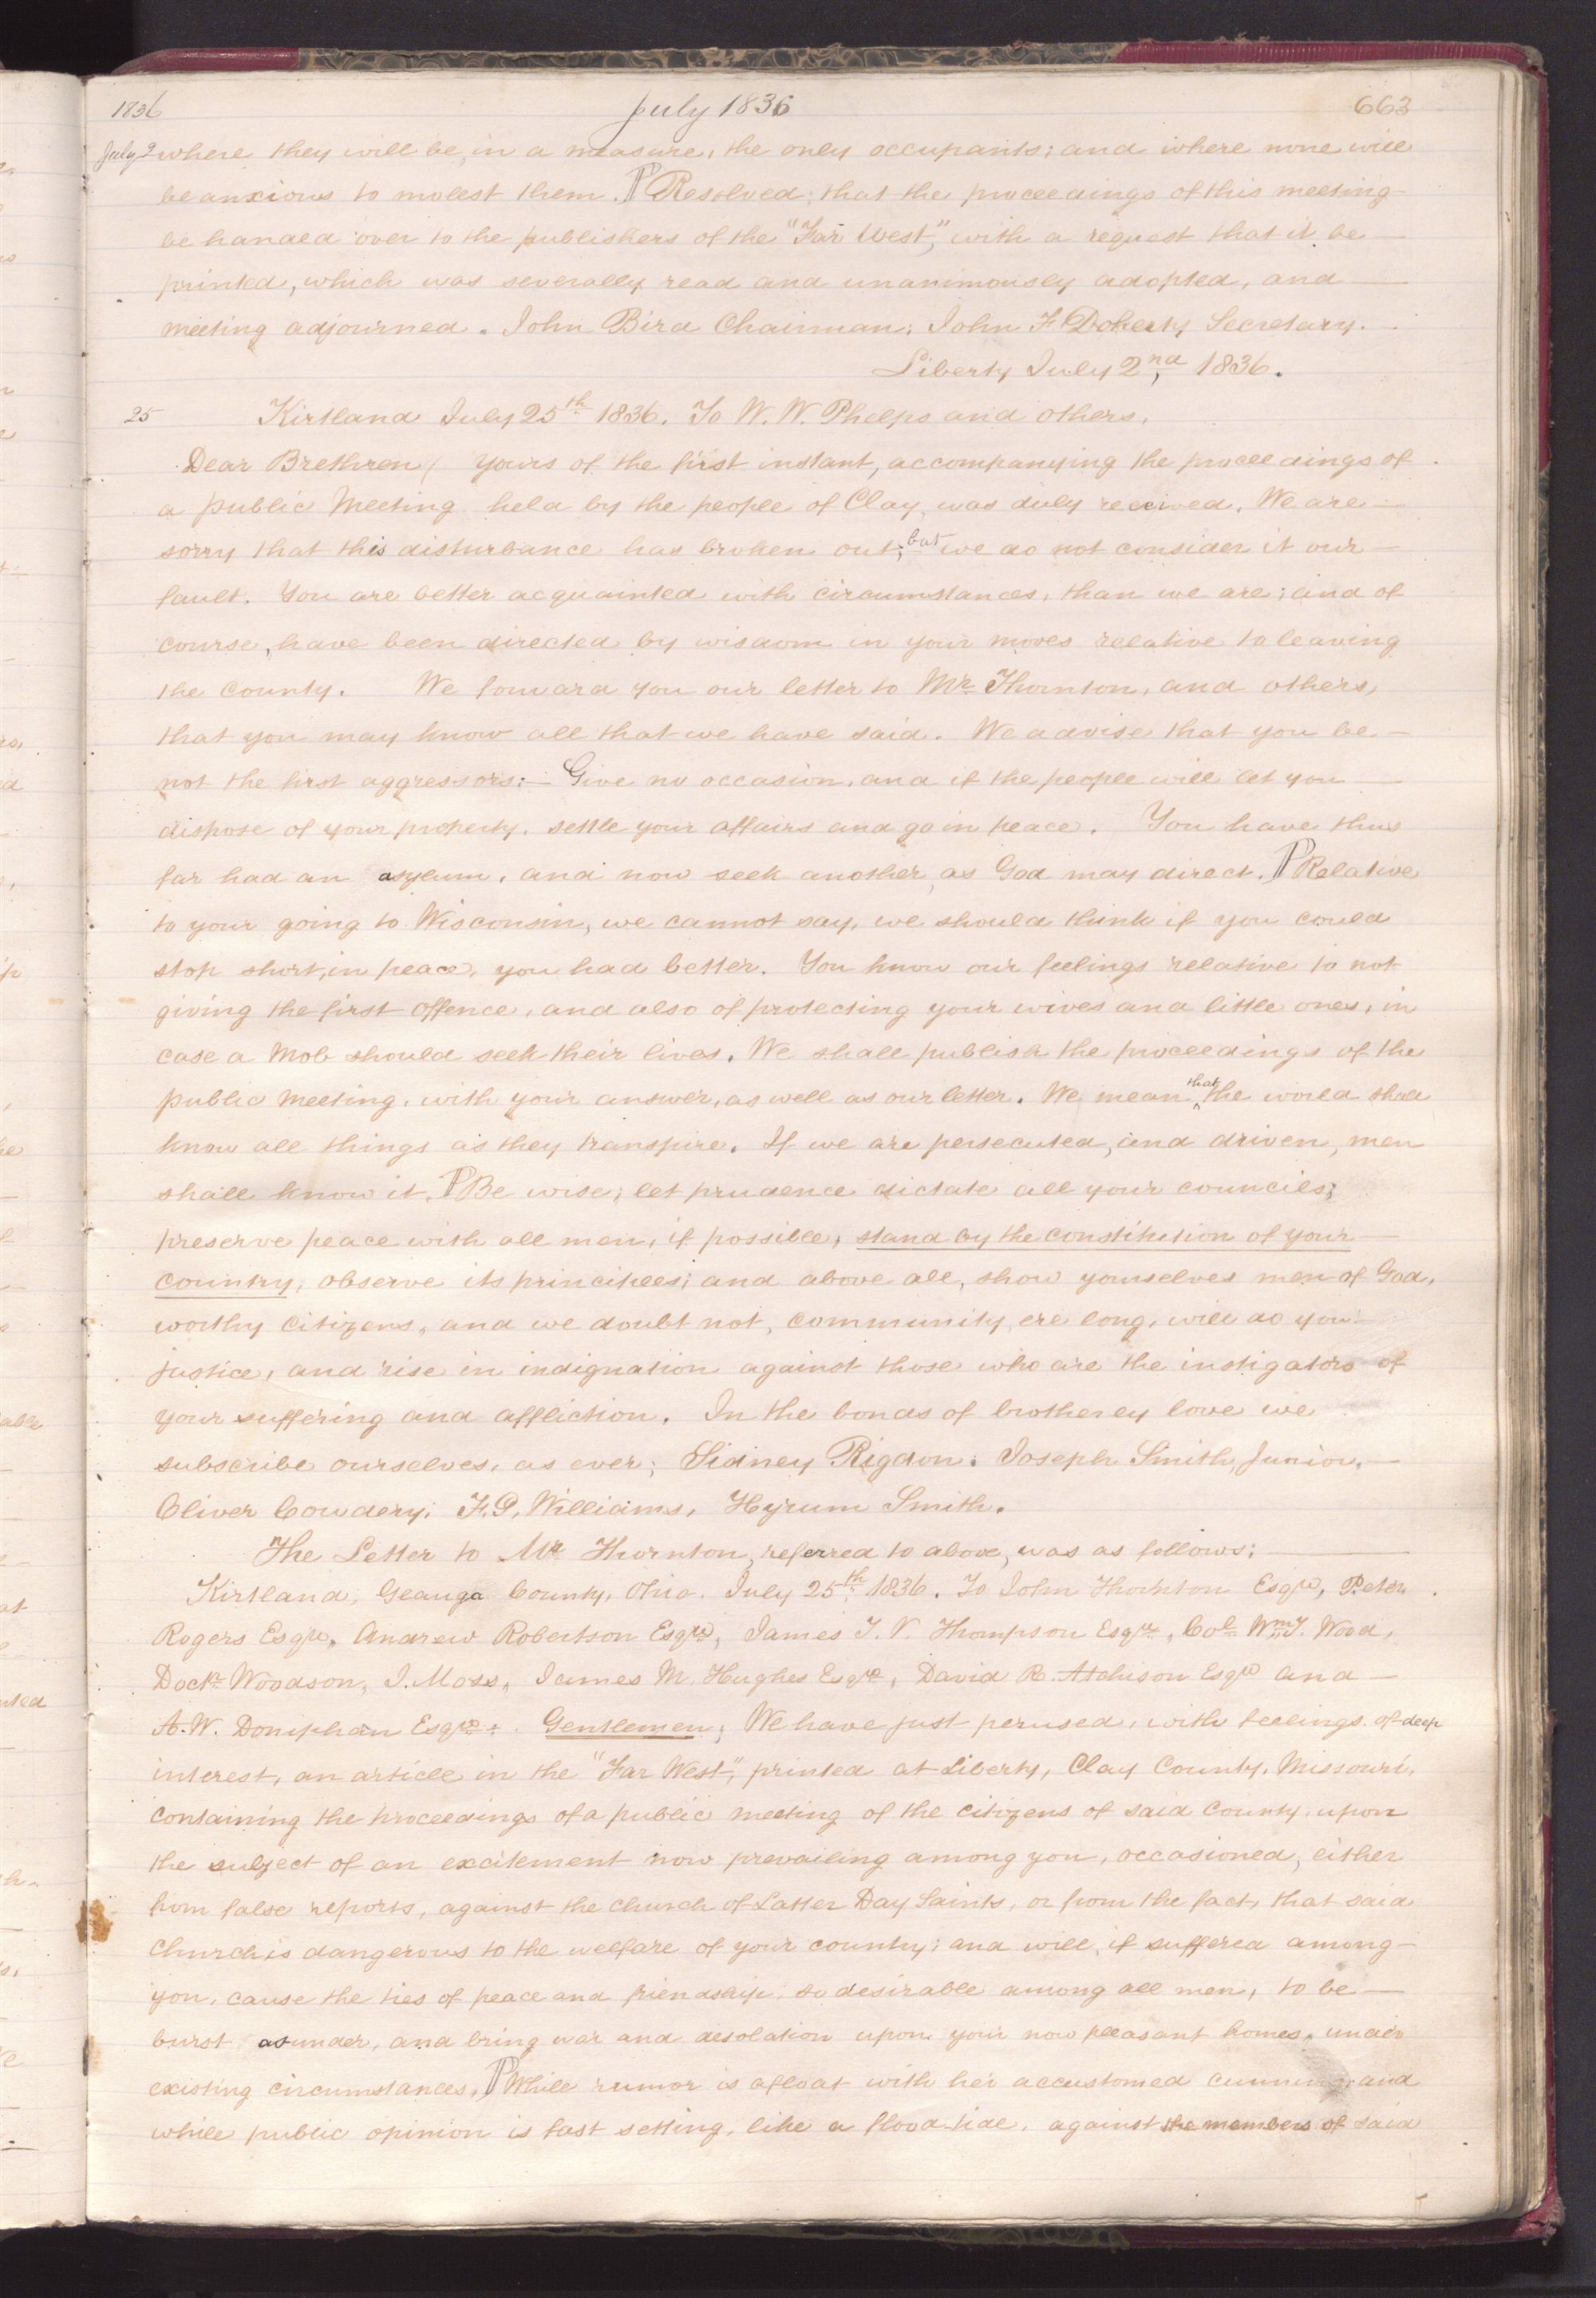 1836 July 1836 663
July 2 where they will be, in a measure, the only occupants; and where none will
be anxious to molest them. ¶ Resolved; that the proceedings of this meeting
be handed over to the publishers of the "Far West," with a request that it be
printed, which was severally read and unanimously adopted, and
meeting adjourned. John Bird Chairman; John F Doherty Secretary.
Liberty July 2nd, 1836.
25 Kirtland July 25th 1836. To W. W. Phelps and others.
Dear Brethren, yours of the first instant, accompanying the proceedings of
a public Meeting held by the people of Clay, was duly received. We are
sorry that this disturbance has broken out; but we do not consider it our
fault. You are better acquainted with circumstances, than we are; and of
course, have been directed by wisdom in your moves relative to leaving
the County. We forward you our letter to Mr Thornton, and others,
that you may know all that we have said. We advise that you be
not the first aggressors:— Give no occasion, and if the people will let you
dispose of your property, settle your affairs and go in peace. You have thus
far had an asylum, and now seek another, as God may direct. ¶ Relative
to your going to Wisconsin, we cannot say, we should think if you could
stop short, in peace, you had better. You know our feelings relative to not
giving the first offence, and also of protecting your wives and little ones, in
case a Mob should seek their lives. We shall publish the proceedings of the
public meeting, with your answer, as well as our letter. We mean that the world shall
know all things as they transpire. If we are persecuted, and driven, men
shall know it. ¶ Be wise; let prudence dictate all your councils;
preserve peace with all men, if possible, stand by the constitution of your
country, observe its principles; and above all, show yourselves men of God,
worthy citizens, and we doubt not, community, ere long, will do you
justice, and rise in indignation against those who are the instigators of
your suffering and affliction. In the bonds of brotherly love we
subscribe ourselves, as ever; Sidney Rigdon. Joseph Smith, Junior,
Oliver Cowdery, F. G. Williams, Hyrum Smith.
The Letter to Mr Thornton, referred to above, was as follows:
Kirtland, Geauga County, Ohio. July 25th 1836. To John Thornton Esqre, Peter
Rogers Esqre, Andrew Robertson Esqre, James T. V. Thompson Esqre, Col Wm T. Wood,
Doctr Woodson, J. Moss, James M. Hughes Esqre, David R. Atchison Esqre and
A. W. Doniphan Esqre. Gentlemen; We have just perused, with feelings of deep
interest, an article in the "Far West", printed at Liberty, Clay County, Missouri,
containing the proceedings of a public meeting of the citizens of said County, upon
the subject of an excitement now prevailing among you, occasioned, either
from false reports, against the church of Latter Day Saints, or from the fact, that said
church is dangerous to the welfare of your country; and will, if suffered among
you, cause the ties of peace and friendship, so desirable among all men, to be
burst asunder, and bring war and desolation upon your now pleasant homes, under
existing circumstances, ¶ While rumor is afloat with her accustomed cunning, and
while public opinion is fast setting, like a flood-tide, against the members of said